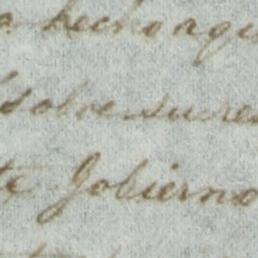 a hecho aqu
sobre su re
te Gobierno